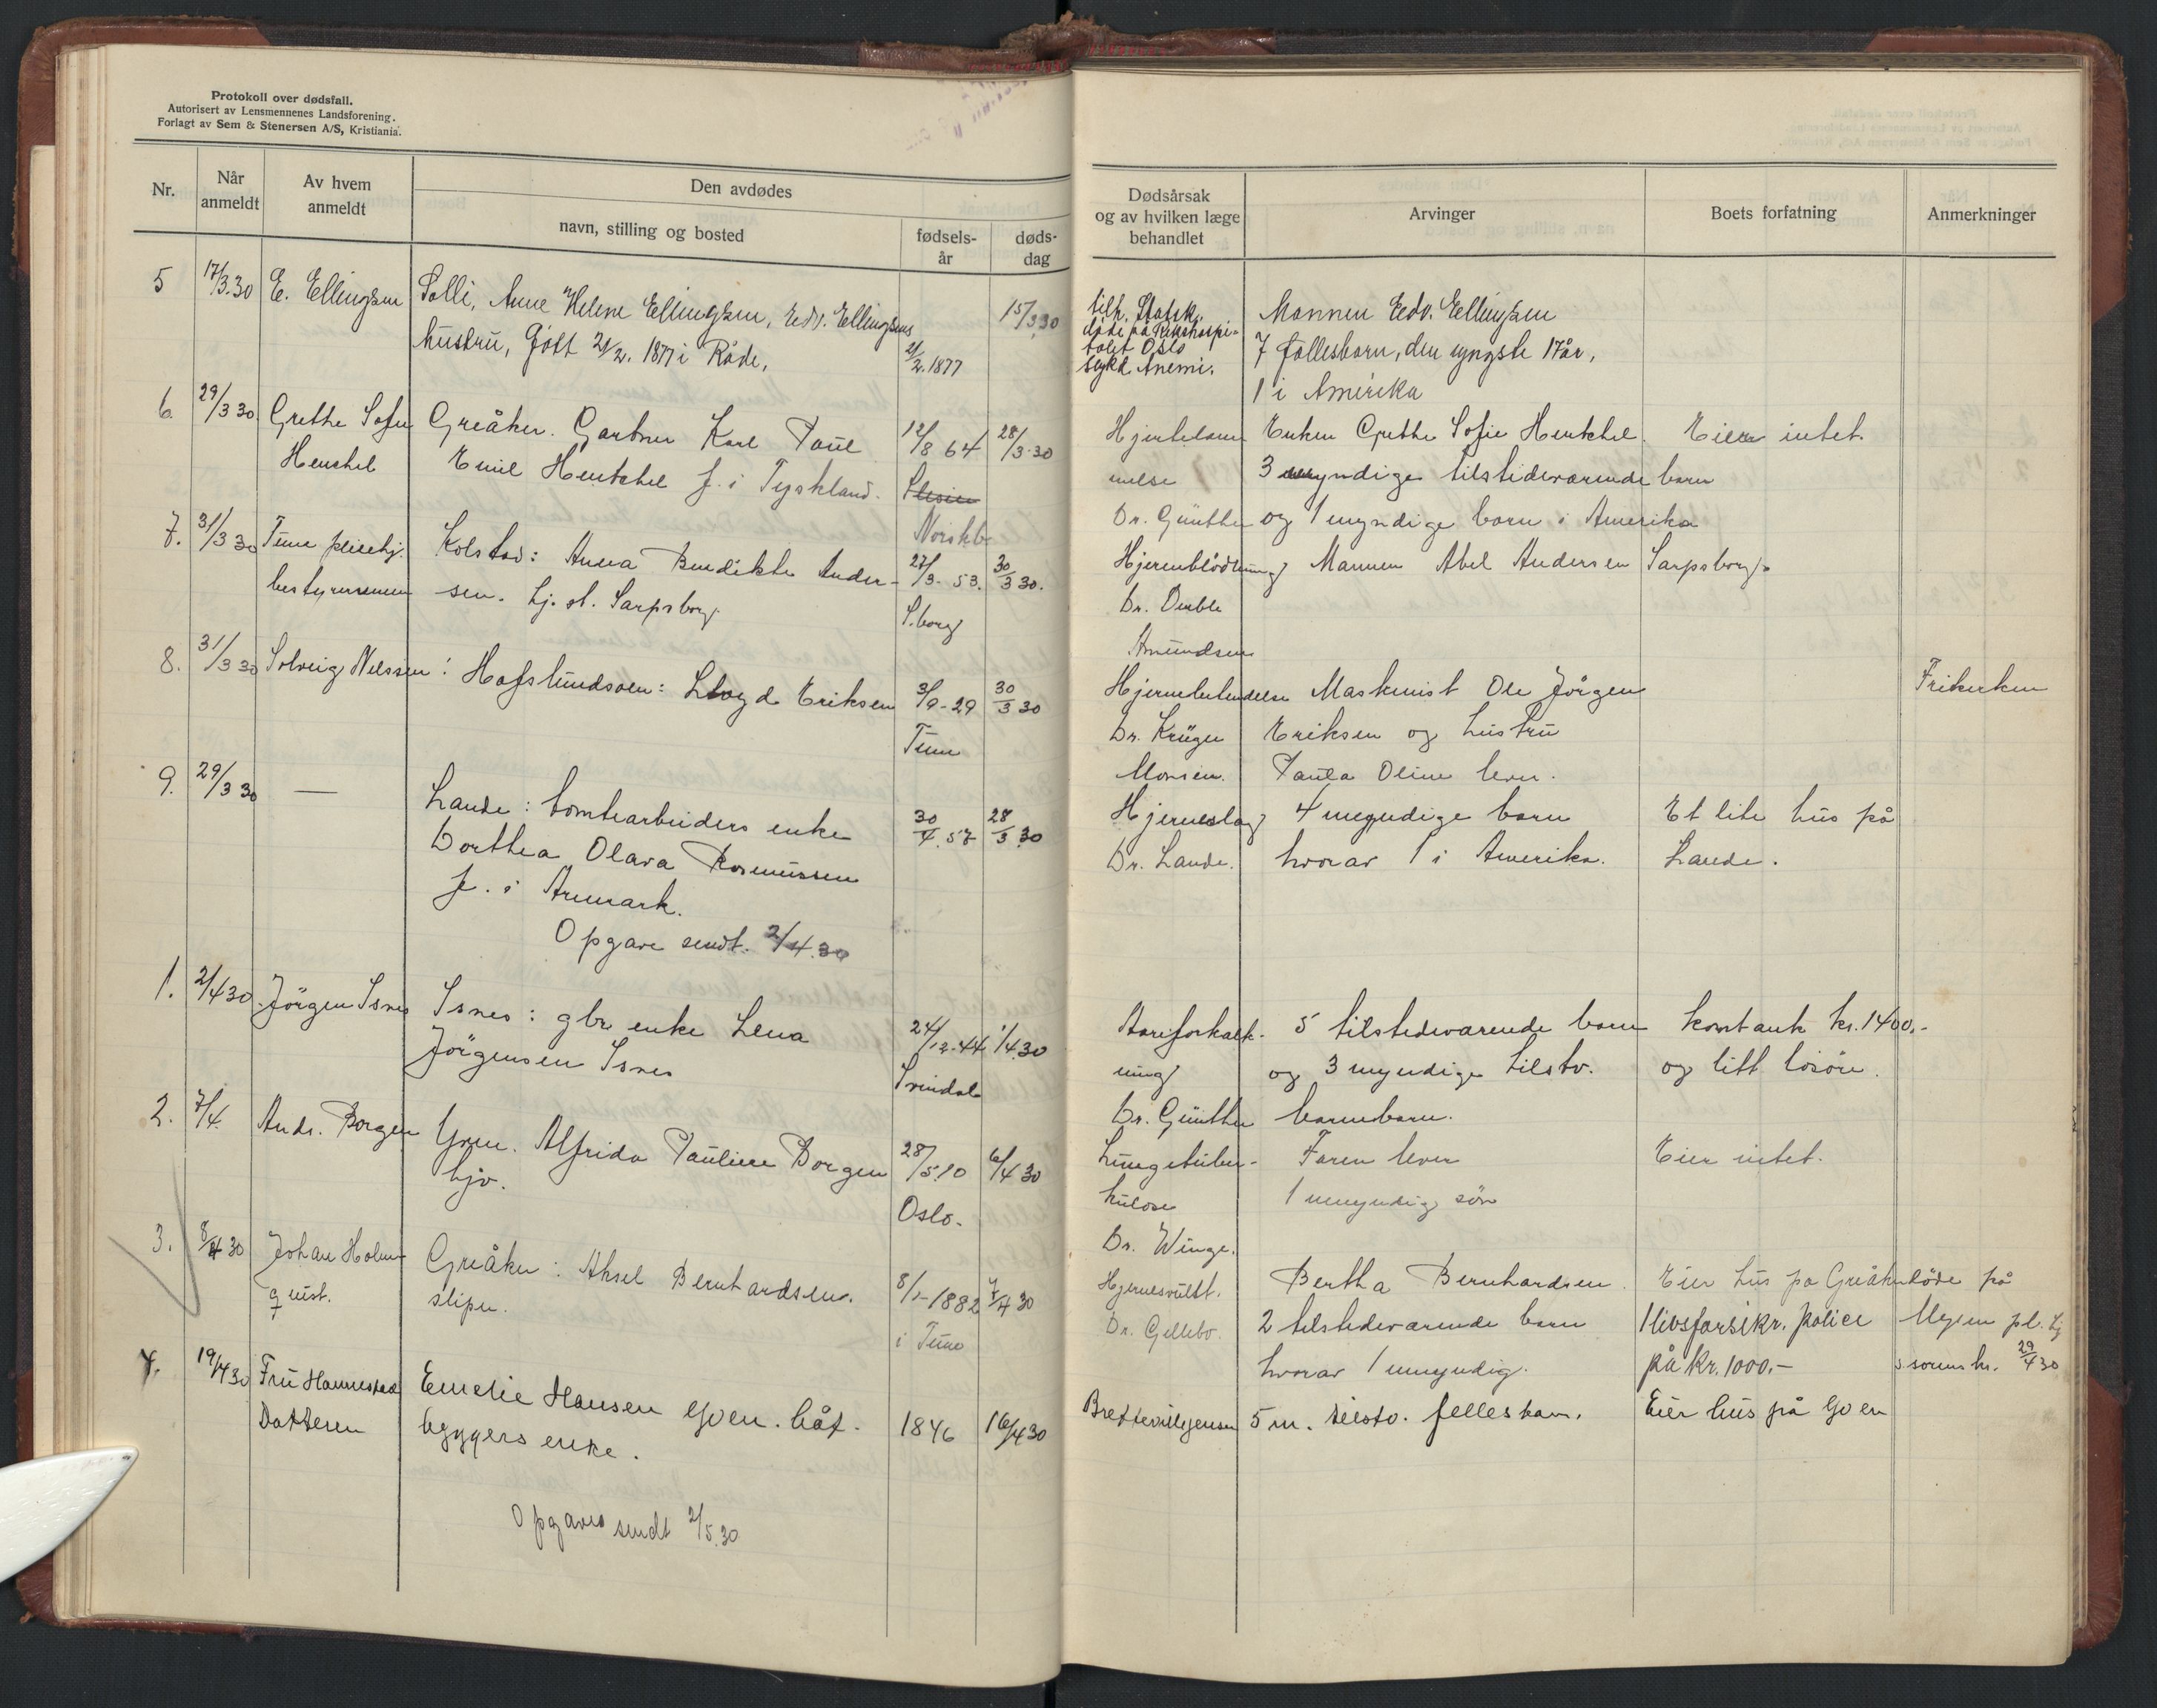 Protokoll over dødsfall.
Autorisert av Lensmennenes Landsforening.
Forlagt av Sem & Stenersen A/S, Kristiania.
Nr.
Når anmeldt
Av hvem anmeldt
Den avdødes
navn, stilling og bosted
fødsels-år
døds-dag
Dødsårsak og av hvilken læge behandlet
Arvinger
Boets forfatning
Anmerkninger
5 17/3.30 E. Ellingsen Solli, Anne Helene Ellingsen, Edv. Ellingsens 15/3.30
hustru, født 21/2. 1877 i Råde, 21/2.1877
tilh. Statsk.
døde på Rikshospi-
talet Oslo
sykd. Anemi.
Mannen Edv. Ellingsen
7 fællesbarn, den yngste 17 år,
1 i Amerika
6. 29/3 30. Grethe Sofie Greåker. Gartner Karl Paul 12/8 64 28/3.30
Henschel Emil Hentchel f. i Tyskland.
Hjertelam- Enken Grethe Sofie Hentchel. Eier intet.
melse 3 myndige tilstedeværende barn
Dr. Günther og 1 myndige barn i Amerika
7. 31/3 30 Tune pleiehj. Kolstad: Anna Bendikte Ander- 27/3. 53. 30/3 30.
bestyrerinnen sen. hj. st. Sarpsborg. S.borg
Hjerneblödning Mannen Abel Andersen Sarpsborg.
Dr.
Amundsen
8. 31/3 30 Solveig Nilssen: Hafslundsøen: Lloyd Eriksen 3/9-29 30/3 30
Tune
Hjernebetendelse Maskinist Ole Jörgen Frikirken
Dr. Krüger Eriksen og hustru
Monsen. Paula Oline lever.
9. 29/3 30 — Lande: tomtearbeiders enke 30/4.57 28/3.30
Dorthea Olava Rasmussen
f. i Aremark.
Opgave sendt. 2/4.30
Hjerneslag 4 myndige barn Et lite hus på
Dr. Lande. hvorav 1 i Amerika. Lande.
1. 2/4 30. Jörgen Isnes Isnes: gbr. enke Lena 24/12-44 1/4.30
Jörgensen Isnes Svindal
Aareforkalk- 5 tilstedeværende barn kontant kr. 1400.-
ning og 3 myndige tilstv. og litt lösöre.
Dr. Günther barnebarn.
2. 7/4. Andr. Borgen Yven. Alfrida Pauline Borgen 28/5.10 6/4 30
hjv. Oslo.
Lungetuber- Faren lever Eier intet.
kulose 1 umyndig sön
Dr. Winge.
3. 8/4 30 Johan Holm- Greåker: Aksel Bernhardsen. 8/1-1882 7/4 30
quist. sliper. i Tune
Hjernesvulst. Bertha Bernhardsen. Eier hus på Greåker döde på
Dr. Gellebo. 2 tilstedeværende barn 1 livsforsikr. police Mysen pl. hj
hvorav 1 umyndig. på kr. 1000.- 29/4 30
4. 19/4 30 Fru Hannestad Emelie Hansen Yven. båt- 1846 16/4 30
Datteren byggers enke.
5 m. tilstv. felles barn. Eier hus på Yven
Opgave sendt 2/5.30